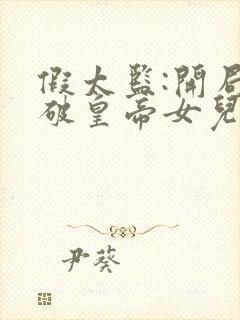 假太監:開局
破皇帝女兒
尹葵